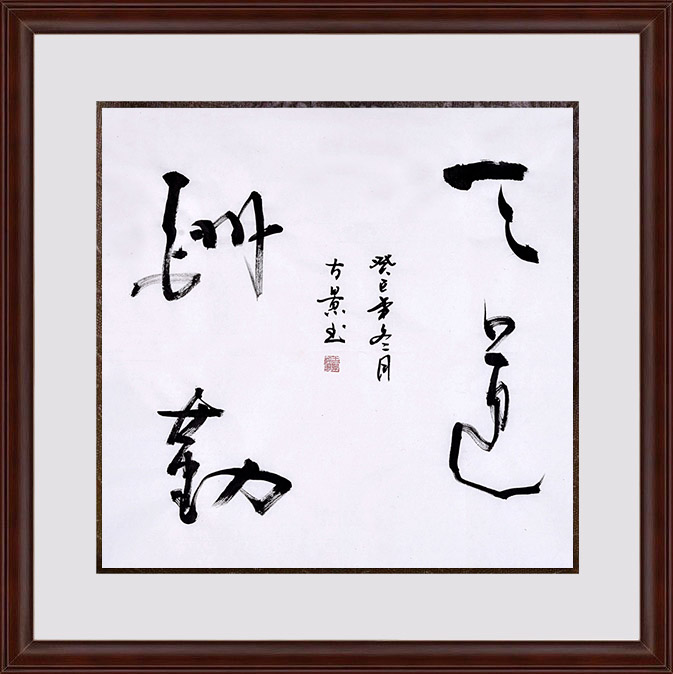 天道
酬勤
癸巳年冬月
古景书